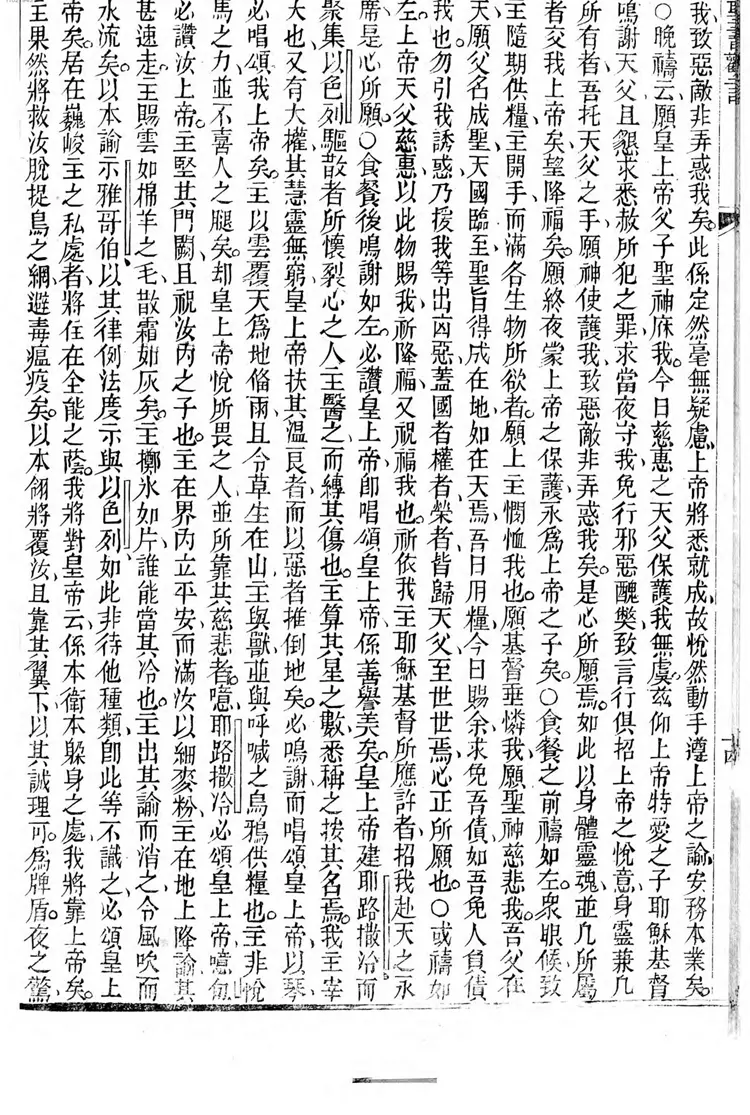 聖書勸言
十四
我致惡敵非弄惑我矣。此係定然毫無疑慮、上帝將悉就成、故悅然動手遵上帝之諭、安務本業矣。
○晚禱云、願皇上帝父子聖神庥我。今日慈惠之天父保護我無虞。茲仰上帝特愛之子耶穌基督
鳴謝天父、且懇求悉赦所犯之罪、求當夜守我免行邪惡醜獘、致言行俱招上帝之悅意、身靈兼凡
所有者、吾托天父之手、願神使護我、致惡敵非弄惑我矣。是心所願焉。如此以身體靈魂、並凡所屬
者交我上帝矣、望降福矣。願終夜蒙上帝之保護、永爲上帝之子矣。○食餐之前禱如左。衆眼候致
主隨期供糧、主開手而滿各生物所欲者。願上主憫恤我也、願基督垂憐我、願聖神慈悲我。吾父在
天、願父名成聖、天國臨至、聖旨得成在地、如在天焉。吾日用糧、今日賜余、求免吾債、如吾免人負債
我也。勿引我誘惑、乃援我等出凶惡、蓋國者權者榮者、皆歸天父、至世世焉、心正所願也。○或禱如
左、上帝天父慈惠、以此物賜我、祈降福、又祝福我也。祈依我主耶穌基督所應許者、招我赴天之永
席、是心所願。○食餐後鳴謝如左。必讚皇上帝、卽唱頌皇上帝、係善譽美矣。皇上帝建耶路撒冷、而
聚集以色列驅散者、所懷裂心之人、主醫之、而縛其傷也。主算其星之數、悉稱之、按其名焉。我主宰
大也、又有大權、其慧靈無窮、皇上帝扶其溫良者、而以惡者推倒地矣。必鳴謝而唱頌皇上帝、以琴
必唱頌我上帝矣。主以雲覆天、爲地俻雨、且令草生在山。主與獸並與呼喊之烏鴉供糧也。主非悅
馬之力、並不喜人之腿矣。却皇上帝悅所畏之人、並所靠其慈悲者。噫、耶路撒冷必頌皇上帝、噫郇
必讚汝上帝。主堅其門闢、且祝汝內之子也。主在界內立平安、而滿汝以細麥粉、主在地上降諭、其
甚速走。主賜雲如棉羊之毛、散霜如灰矣。主擲氷如片、誰能當其冷也。主出其諭而消之、令風吹而
水流矣。以本諭示雅哥伯、以其律例法度、示與以色列、如此非待他種類、卽此等不識之、必頌皇上
帝矣。居在巍峻主之私處者、將住在全能之蔭。我將對皇帝云、係本衛本躲身之處、我將靠上帝矣。
主果然將救汝脫捉鳥之網、避毒瘟疫矣。以本翎將覆汝、且靠其翼下、以其誠理可爲牌盾。夜之驚、